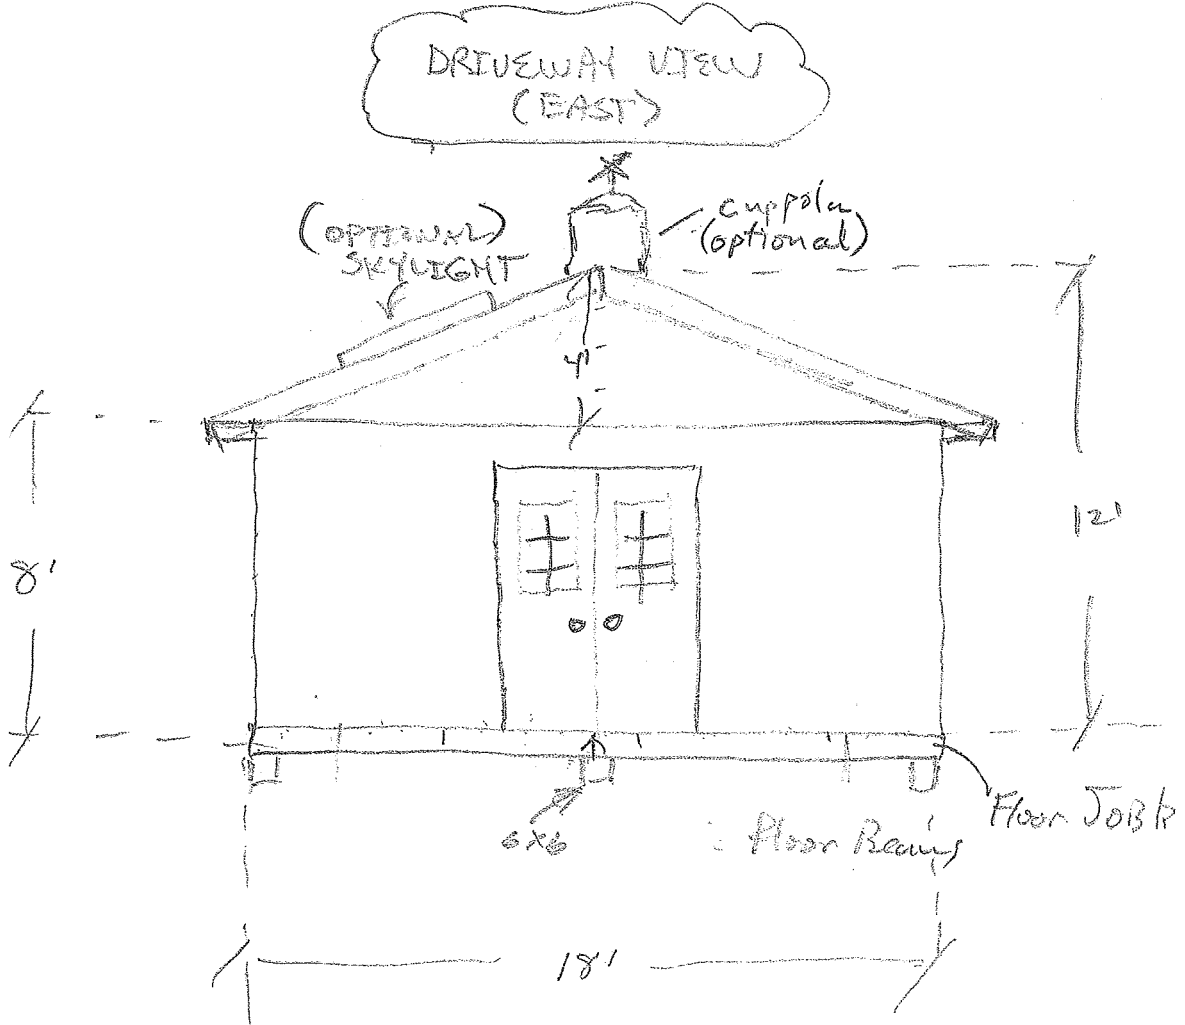 DRIVEWAY VIEW
(EAST)
(OPTIONAL)
SKYLIGHT
cuppola
(optional)
4'
8'
12'
6x6
Floor Beams
Floor
18'